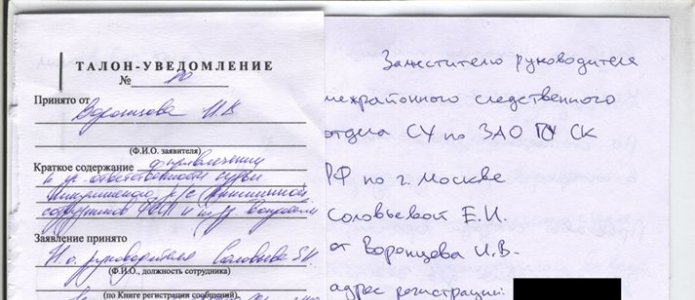 ТАЛОН-УВЕДОМЛЕНИЕ
№ 80
Принято от Воронцова И.В.
(Ф.И.О. заявителя)
Краткое содержание о привлечении
к уг. ответственности судьи
р/с
сотрудников и др.
Заявление принято
И.о. руководителя Соловьева Е.И.
(Ф.И.О., должность сотрудника)
(по Книге регистрации сообщений)
Заместителю руководителя
межрайонного следственного
отдела СУ по ЗАО ГУ СК
РФ по г. Москве
Соловьевой Е.И.
от Воронцова И.В.
адрес регистрации: